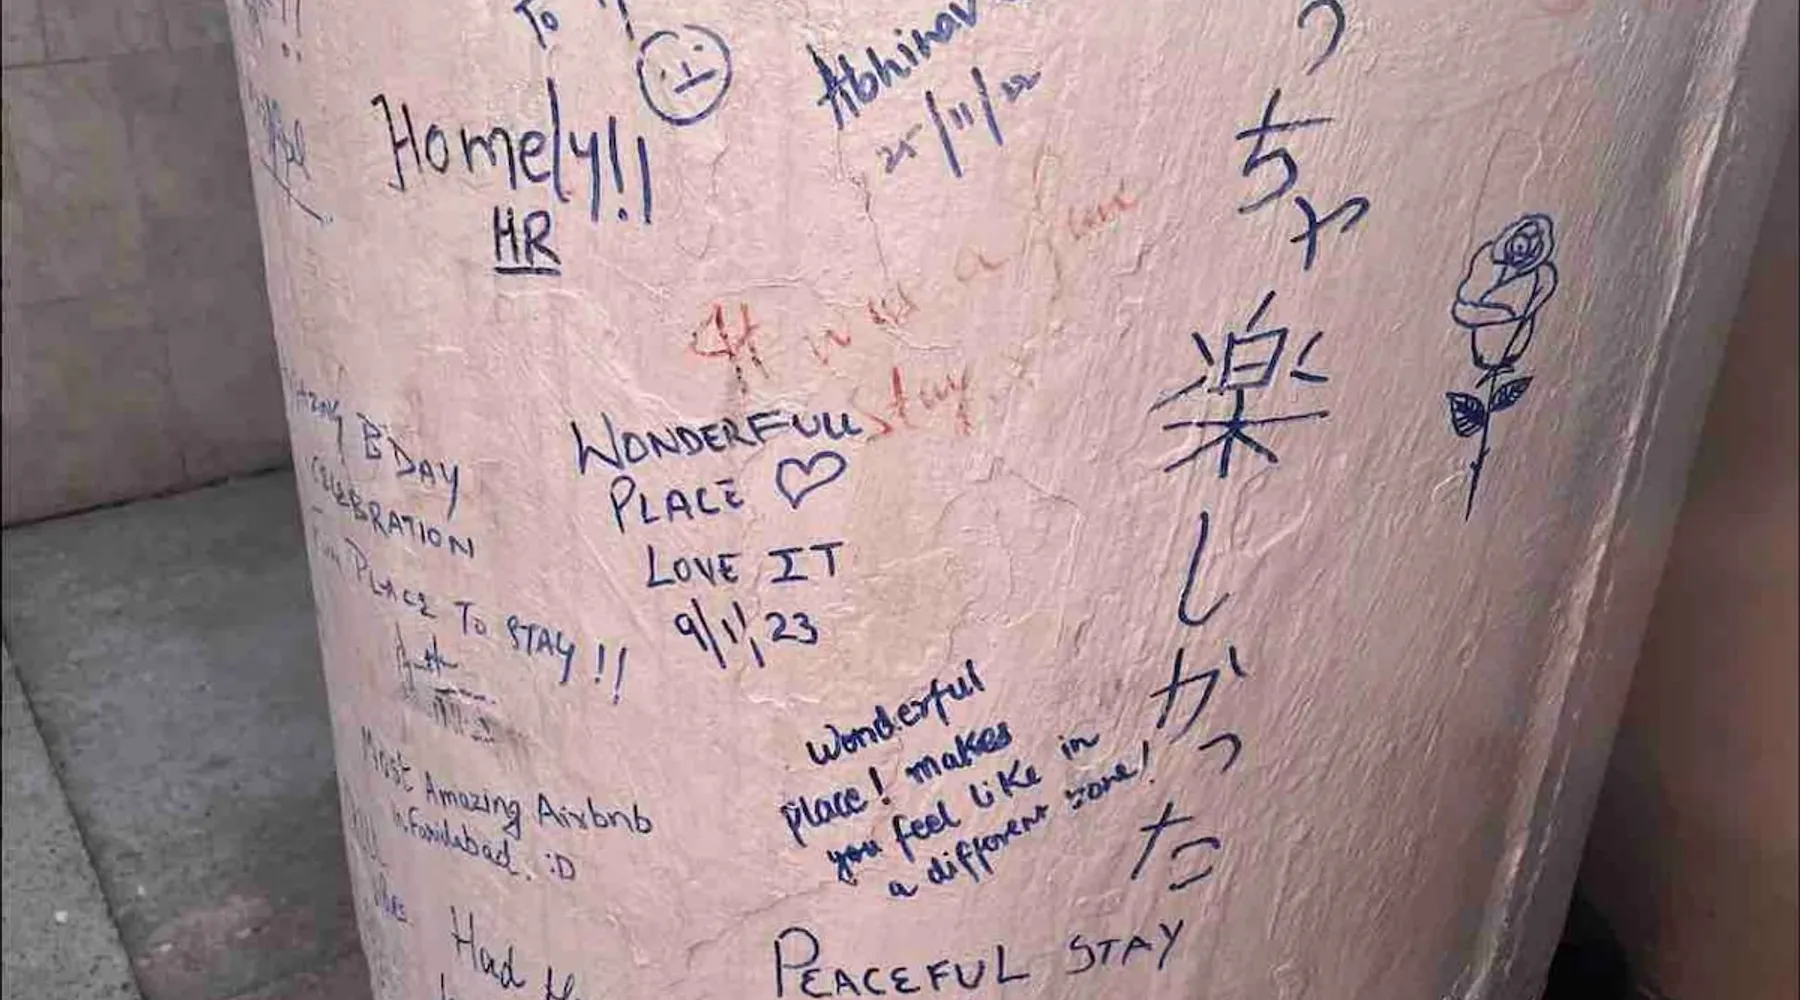 To
Homely!!
HR
Abhinav
25/11/22
It was a fun
stay
WONDERFULL
PLACE
LOVE IT
9/1/23
B'DAY
CELEBRATION
FUN PLACE TO STAY!!
Most Amazing Airbnb
in Faridabad. :D
Wonderful
place! makes
you feel like in
a different zone!
Had
PEACEFUL STAY
っちゃ楽しかった